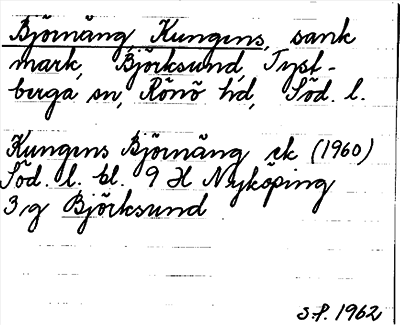 Björnäng, Kungens, sank
mark, Björksund, Tyst-
berga sn, Rönö hd, Söd. l.
Kungens Björnäng ek (1960)
Söd. l. bl. 9 H Nyköping
3,g Björksund
S.P. 1962